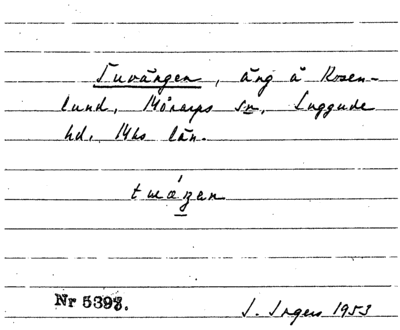 Tuvängen, äng å Rosen-
lund, Mörarps sn, Luggude
hd, Mhs län.
Nr 5398.
I. Ingers 1953